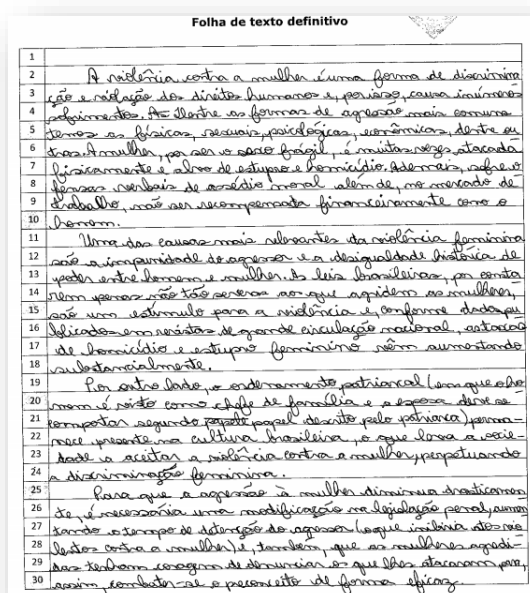 Folha de texto definitivo
1
2 A violência contra a mulher é uma forma de discrimina
3 ção e violação dos direitos humanos e, por isso, causa inúmeros
4 sofrimentos. As Dentre as formas de agressão mais comuns
5 temos as físicas, sexuais, psicológicas, econômicas, dentre ou
6 tras. A mulher, por ser o sexo frágil, é muitas vezes, atacada
7 fisicamente e alvo de estupro e homicídio. Ademais, sofre o
8 fensas verbais de assédio moral alem de, no mercado de
9 trabalho, não ser recompensada financeiramente como o
10 homem.
11 Uma das causas mais relevantes da violência feminina
12 são a impunidade do agressor e a desigualdade histórica de
13 poder entre homem e mulher. As leis brasileiras, por conta
14 rem penas não tão severas aos que agridem as mulheres,
15 são um estímulo para a violência e, conforme dados pu
16 blicados em revistas de grande circulação nacional, as taxas
17 de homicídio e estupro feminino vêm aumentando
18 substancialmente.
19 Por outro lado, o ordenamento patriarcal (em que o ho
20 mem é visto como chefe de família e a esposa deve se
21 comportar segundo papel descrito pelo patriarca), perma-
22 nece presente na cultura brasileira, o que leva a socie
23 dade a aceitar a violência contra a mulher, perpetuando
24 a discriminação feminina.
25 Para que a agressão à mulher diminua drasticamen
26 te, é necessária uma modificação na legislação penal, aumen
27 tando o tempo de detenção do agressor (o que inibiria atos vio
28 lentos contra a mulher) e, também, que as mulheres agredi-
29 das tenham coragem de denunciar os que lhes atacaram para,
30 assim, combater-se o preconceito de forma eficaz.